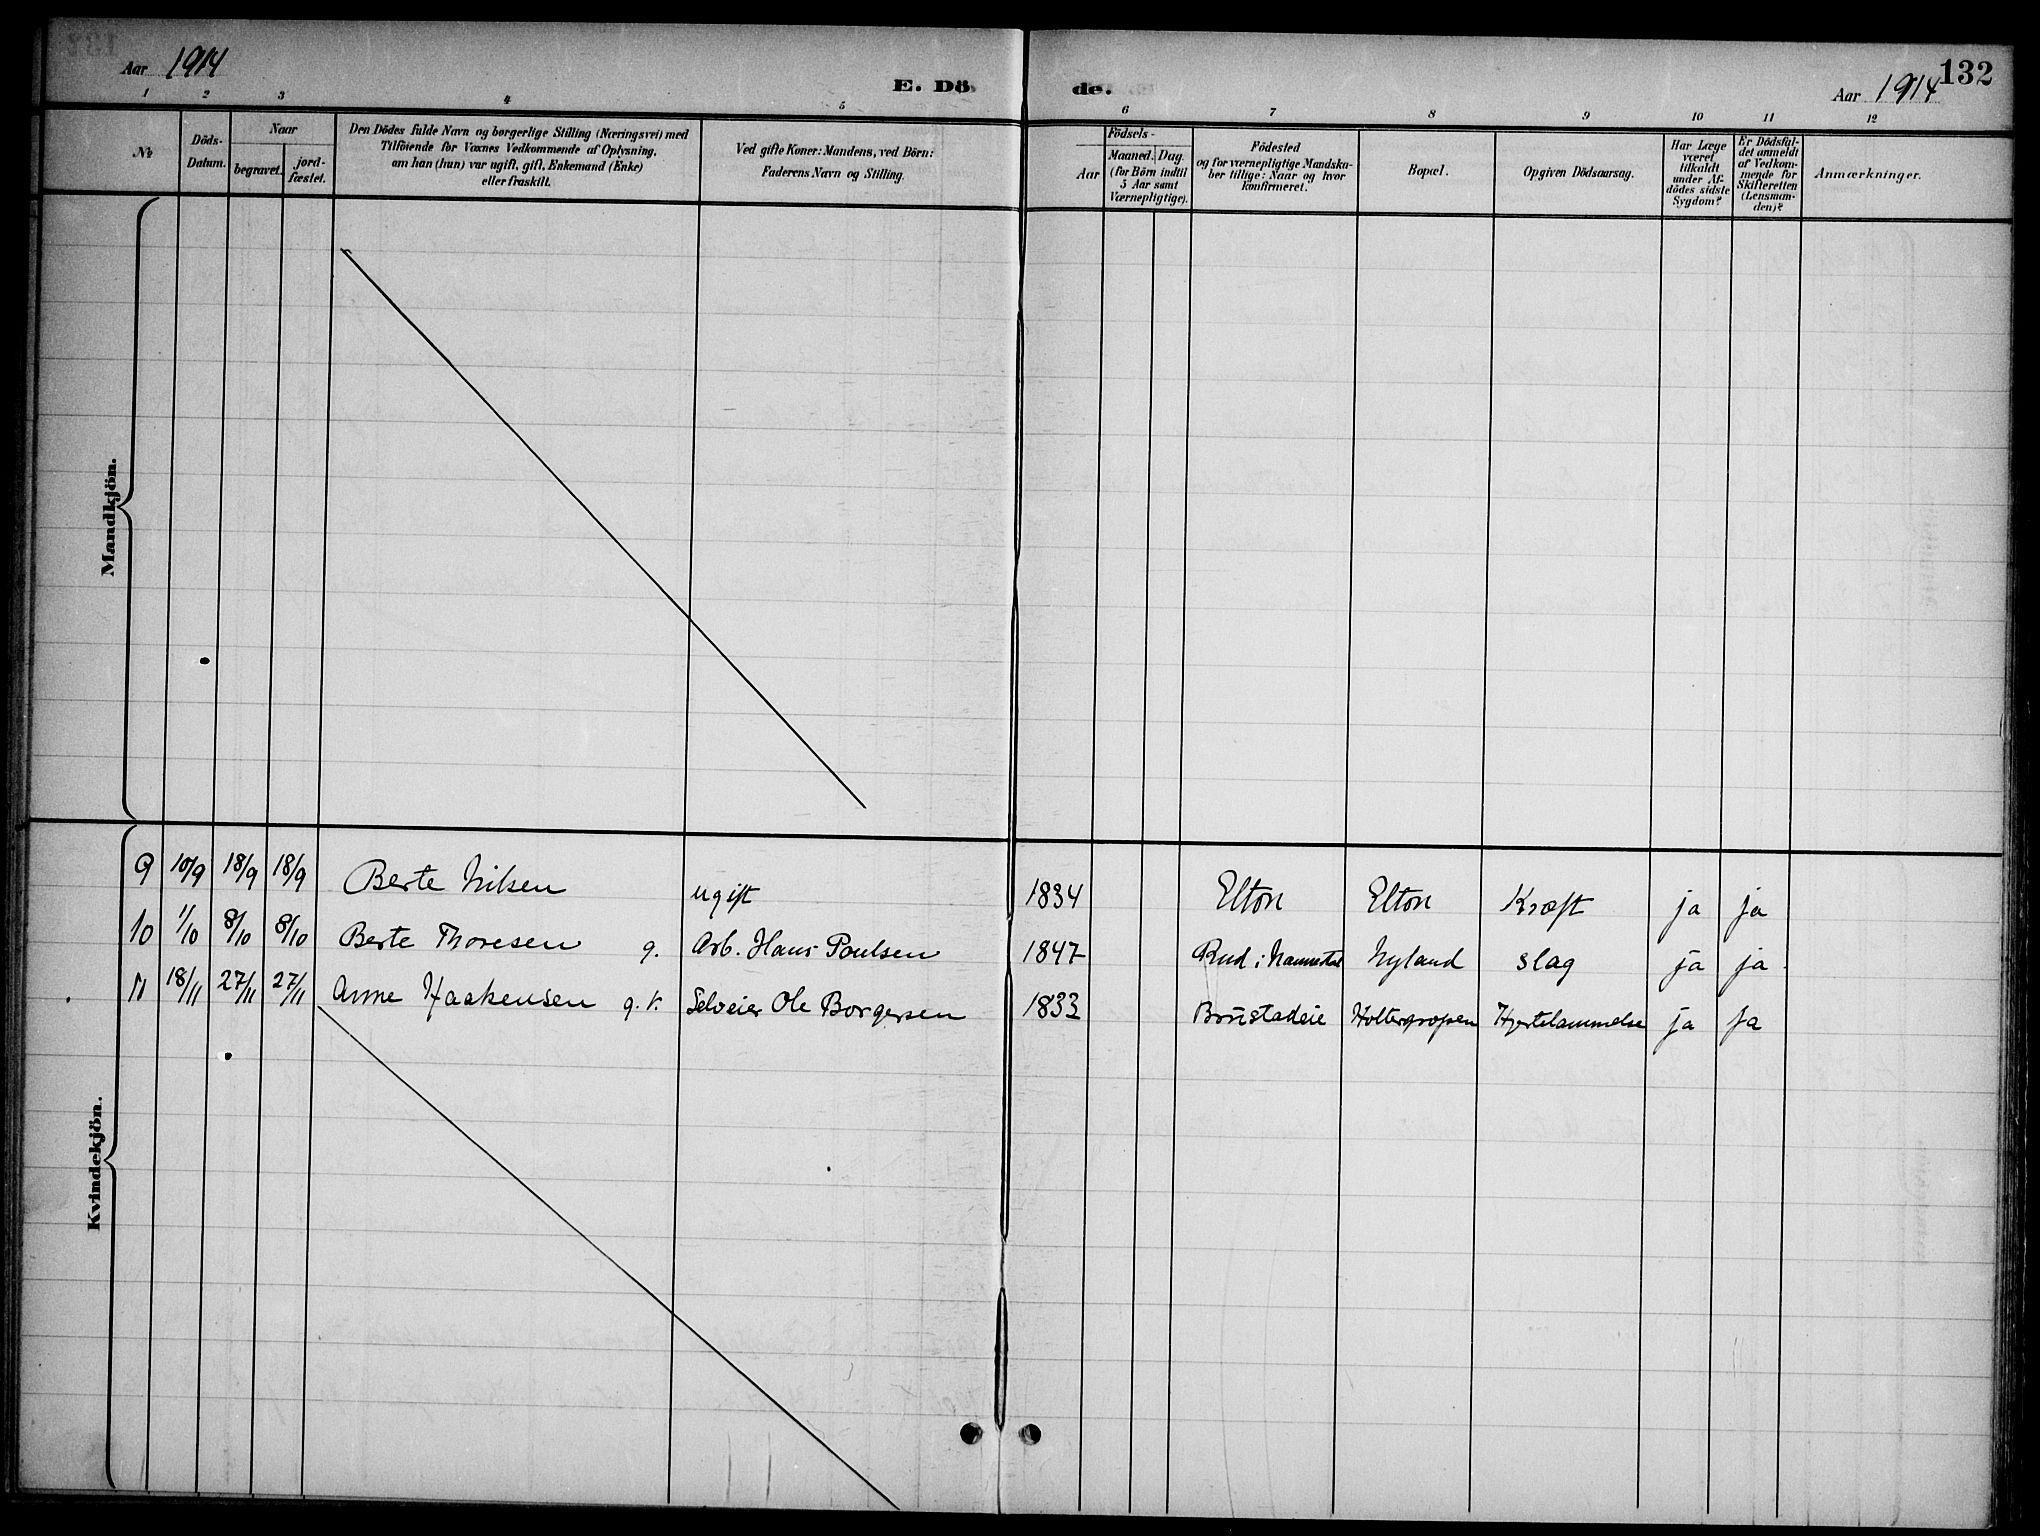 132
Aar 1914
E. Dö
de.
Aar 1914
1 2 3 4 5 6 7 8 9 10 11 12
Nr
Döds-
Datum.
Naar
begravet.
jord-
fæstet.
Den Dödes fulde Navn og borgerlige Stilling (Næringsvei) med
Tilföiende for Voxnes Vedkommende af Oplysning,
om han (hun) var ugift, gift, Enkemand (Enke)
eller fraskilt.
Ved gifte Koner: Mandens, ved Börn:
Faderens Navn og Stilling.
Födsels-
Aar
Maaned. Dag
(for Börn indtil
5 Aar samt
Værnepligtige).
Födested
og for værnepligtige Mandska-
ber tillige: Naar og hvor
konfirmeret.
Bopæl.
Opgiven Dödsaarsag.
Har Læge
været
tilkaldt
under Af-
dödes sidste
Sygdom?
Er Dödsfal-
det anmeldt
af Vedkom-
mende for
Skifteretten
(Lensman-
den)?
Anmærkninger.
Mandkjön.
Kvindekjön.
9 10/9 18/9 18/9 Berte Nilsen ugift 1834 Elton Elton Kræft ja ja
10 1/10 8/10 8/10 Berte Thoresen g. Arb. Hans Poulsen 1847 Rud i Nannestad Nyland slag ja ja
11 18/11 27/11 27/11 Anne Haakensen g. v. Selveier Ole Borgersen 1833 Brustadeie Holtergropen Hjertelammelse ja ja